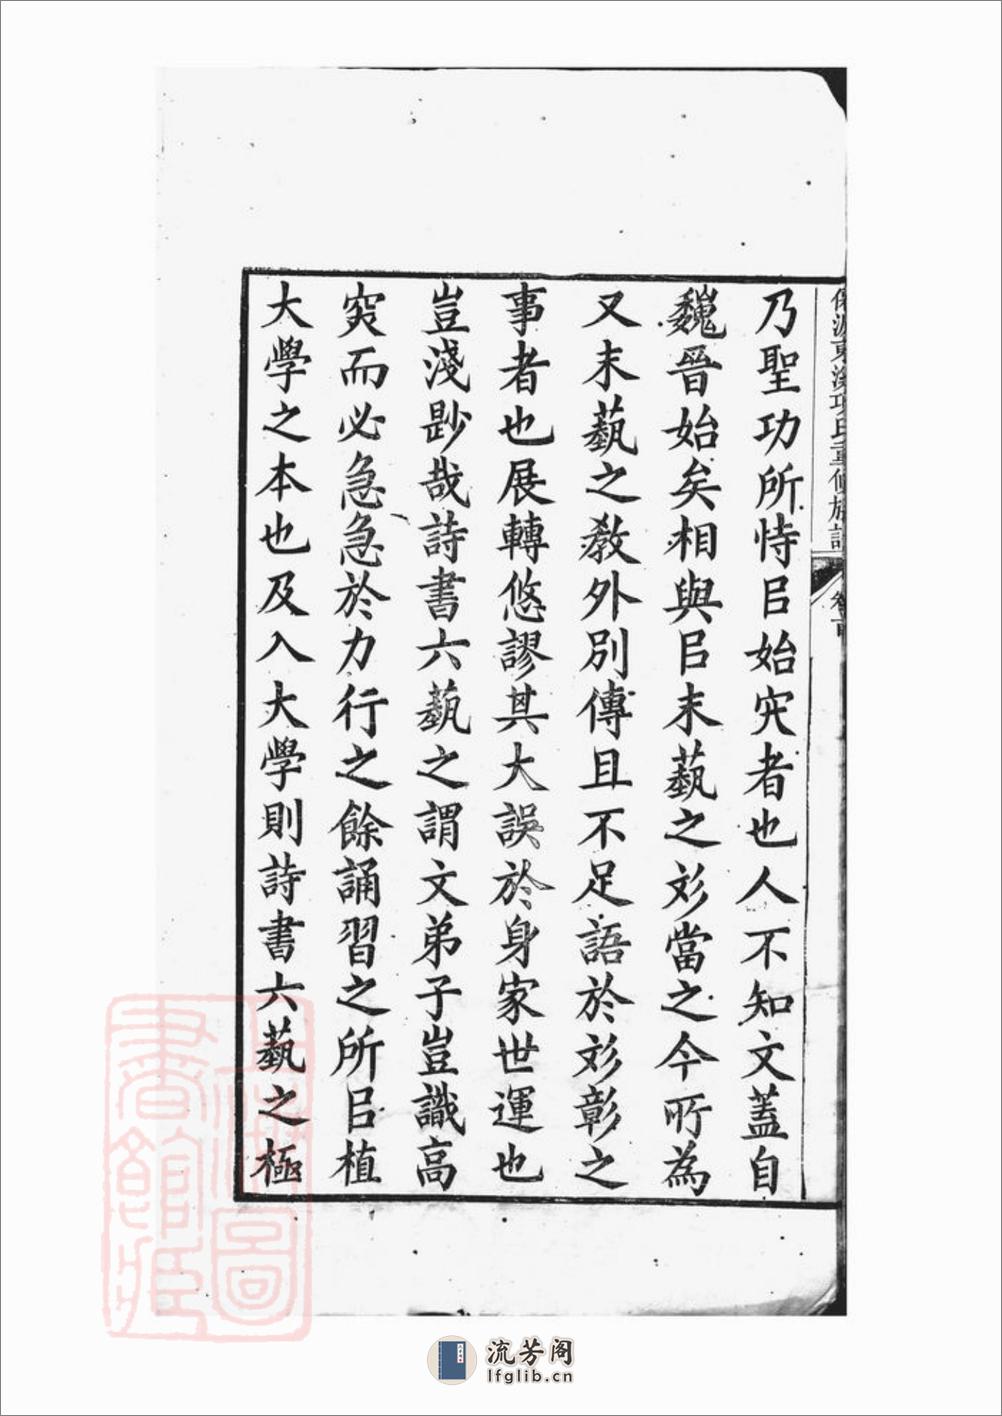 東溪項氏重修族譜 卷首
乃聖功所恃㠯始宊者也人不知文蓋自
魏晉始矣相與㠯末蓺之彣當之今所為
又末蓺之敎外別傳且不足語於彣彰之
事者也展轉悠謬其大誤於身家世運也
豈淺尟哉詩書六蓺之謂文弟子豈識高
突而必急急於力行之餘誦習之所㠯植
大學之本也及入大學則詩書六蓺之極
上海圖
書館藏
流芳阁
lfglib.cn